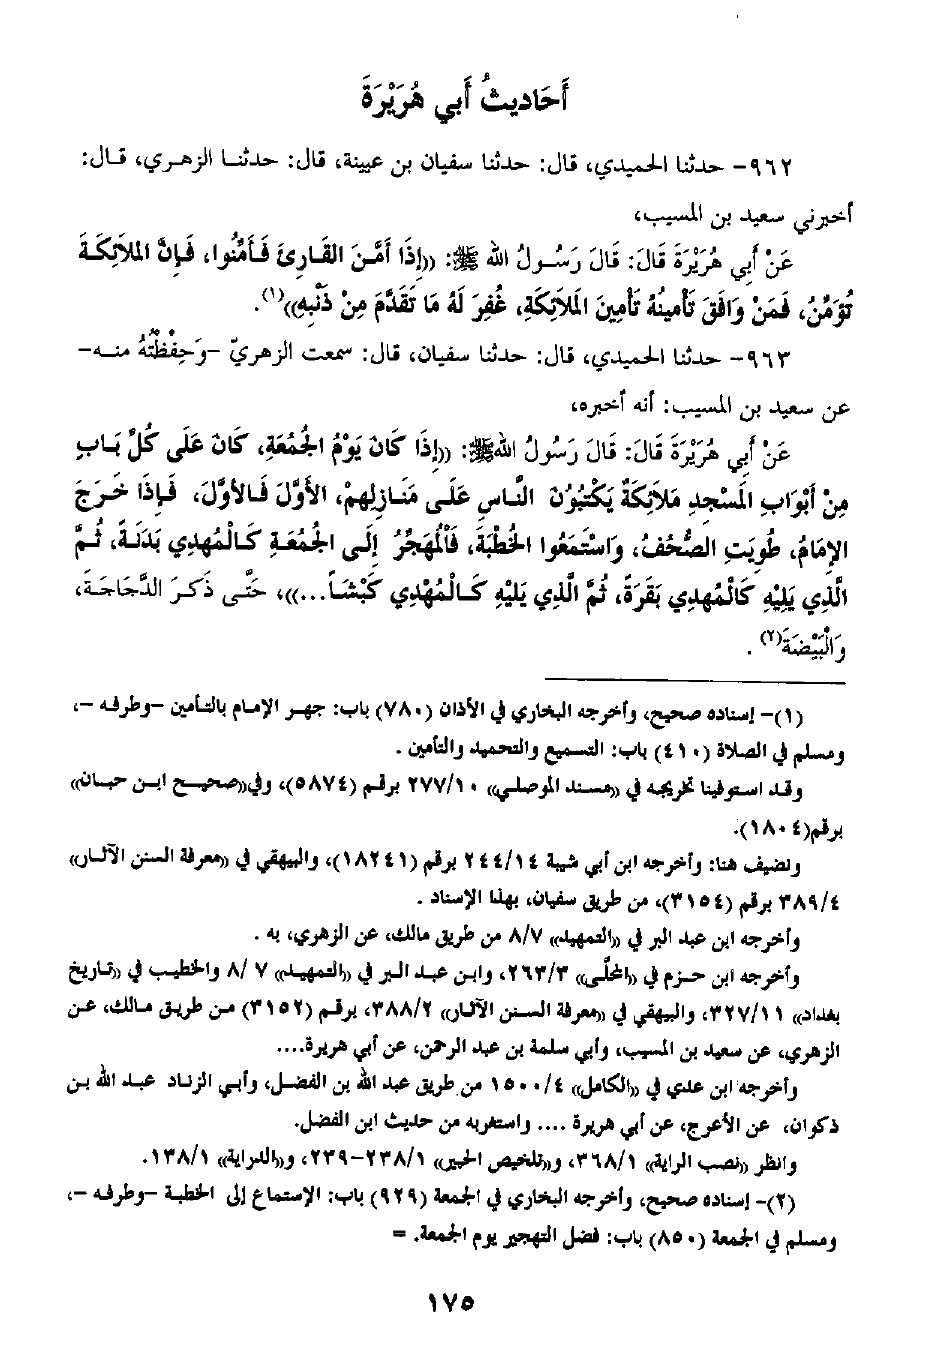 أَحَاديثُ أَبي هُرَيْرَةَ
٩٦٢- حدثنا الحميدي، قال: حدثنا سفيان بن عيينة، قال: حدثنا الزهري، قال:
أخبرني سعيد بن المسيب،
عَنْ أَبِي هُرَيْرَةَ قَالَ: قَالَ رَسُولُ الله ﷺ: ((إِذَا أَمَّنَ القَارِئُ فَأَمِّنُوا، فَإِنَّ المَلاَئِكَةَ
تُؤَمِّنُ، فَمَنْ وَافَقَ تَأْمِينُهُ تَأْمِينَ المَلاَئِكَةِ، غُفِرَ لَهُ مَا تَقَدَّمَ مِنْ ذَنْبِهِ))(١).
٩٦٣- حدثنا الحميدي، قال: حدثنا سفيان، قال: سمعت الزهريّ -وَحَفِظْتُهُ منه-
عن سعيد بن المسيب: أنه أخبره،
عَنْ أَبِي هُرَيْرَةَ قَالَ: قَالَ رَسُولُ اللهﷺ: ((إِذَا كَانَ يَوْمُ الجُمُعَةِ، كَانَ عَلَى كُلِّ بَابٍ
مِنْ أَبْوَابِ المَسْجِدِ مَلاَئِكَةٌ يَكْتُبُونَ النَّاسَ عَلَى مَنَازِلِهِمْ، الأَوَّلَ فَالأَوَّلَ، فَإِذَا خَرَجَ
الإِمَامُ، طُوِيَتِ الصُّحُفُ، وَاسْتَمَعُوا الخُطْبَةَ، فَالْمُهَجِّرُ إِلَى الجُمُعَةِ كَالْمُهدِي بَدَنَةً، ثُمَّ
الَّذِي يَلِيْهِ كَالْمُهدِي بَقَرَةً، ثُمَّ الَّذِي يَلِيْهِ كَالمُهْدِي كَبْشَاً...))، حَتَّى ذَكَرَ الدَّجَاجَةَ،
وَالْبَيْضَةَ(٢).
(١)- إسناده صحيح، وأخرجه البخاري في الأذان (٧٨٠) باب: جهر الإمام بالتأمين -وطرفه -،
ومسلم في الصلاة (٤١٠) باب: التسميع والتحميد والتأمين .
وقد استوفينا تخريجه في ((مسند الموصلي)) ٢٧٧/١٠ برقم (٥٨٧٤)، وفي((صحيح ابن حبان))
برقم(١٨٠٤).
ونضيف هنا: وأخرجه ابن أبي شيبة ٢٤٤/١٤ برقم (١٨٢٤١)، والبيهقي في ((معرفة السنن الآثار))
٣٨٩/٤ برقم (٣١٥٤)، من طريق سفيان، بهذا الإسناد .
وأخرجه ابن عبد البر في ((التمهيد)) ٨/٧ من طريق مالك، عن الزهري، به .
وأخرجه ابن حزم في ((المحلَّى)) ٢٦٣/٣، وابن عبد البر في ((التمهيد)) ٨/٧ والخطيب في ((تاريخ
بغداد)) ٣٢٧/١١، والبيهقي في ((معرفة السنن الآثار)) ٣٨٨/٢، برقم (٣١٥٢) من طريق مالك، عن
الزهري، عن سعيد بن المسيب، وأبي سلمة بن عبد الرحمن، عن أبي هريرة....
وأخرجه ابن عدي في ((الكامل)) ١٥٠٠/٤ من طريق عبد الله بن الفضل، وأبي الزناد عبد الله بن
ذكوان، عن الأعرج، عن أبي هريرة .... واستغربه من حديث ابن الفضل.
وانظر ((نصب الراية)) ٣٦٨/١، و((تلخيص الحبير)) ٢٣٨/١-٢٣٩، و((الدراية)) ١٣٨/١.
(٢)- إسناده صحيح، وأخرجه البخاري في الجمعة (٩٢٩) باب: الإستماع إلى الخطبة -وطرفه -،
ومسلم في الجمعة (٨٥٠) باب: فضل التهجير يوم الجمعة. =
١٧٥